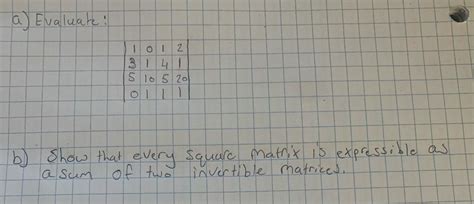 a) Evaluate:
1 0 1 2
3 1 4 1
5 10 5 20
0 1 1 1
b) Show that every square matrix is expressible as
a sum of two invertible matrices.